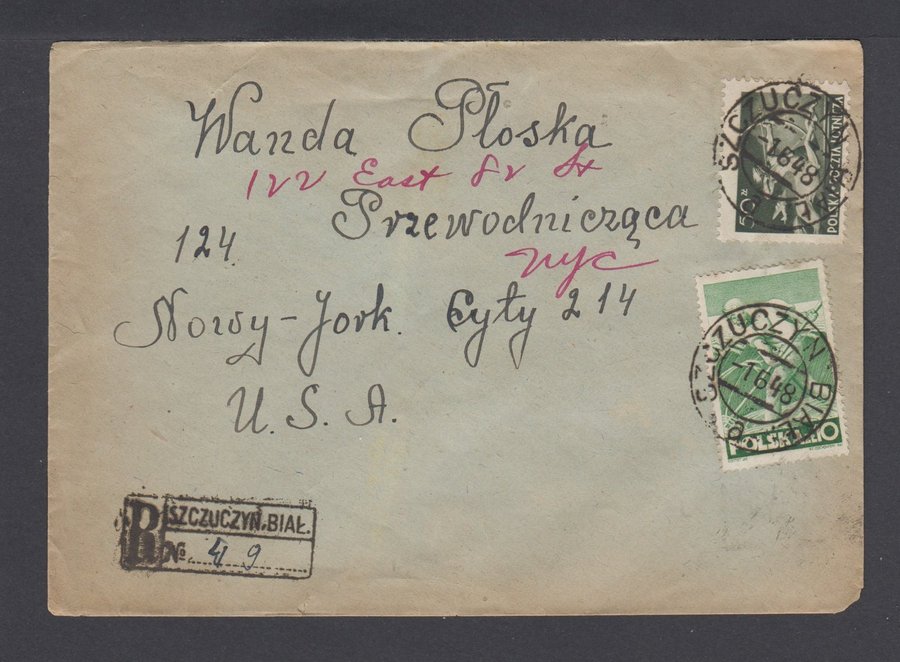 Wanda Płoska
122 East 82 St
Przewodnicząca
124
nyc
Nowy-Jork. Cyty 214
U. S. A.
SZCZUCZYN BIAŁ.
1648
50 ZŁ
POLSKA-POCZTA LOTNICZA
SZCZUCZYN BIAŁ.
1648
POLSKA 10
R SZCZUCZYN. BIAŁ.
№ 49